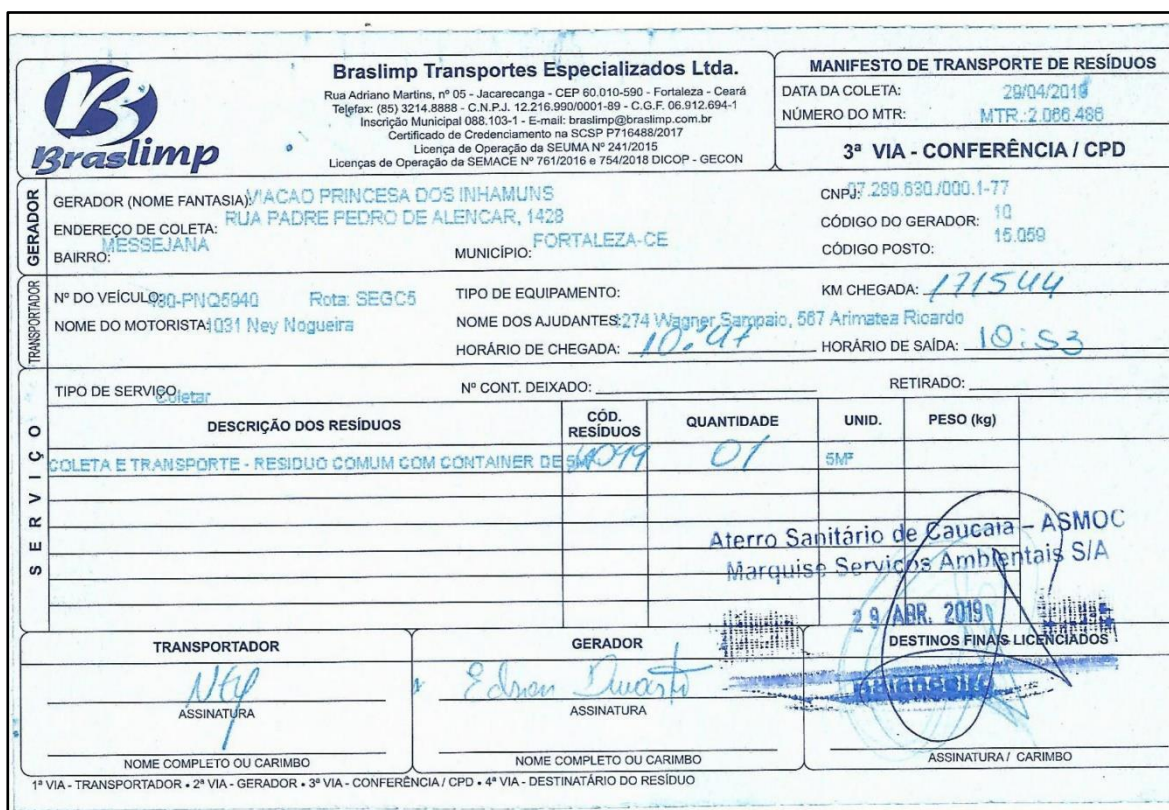 Braslimp
Braslimp Transportes Especializados Ltda.
Rua Adriano Martins, nº 05 - Jacarecanga - CEP 60.010-590 - Fortaleza - Ceará
Telefax: (85) 3214.8888 - C.N.P.J. 12.216.990/0001-89 - C.G.F. 06.912.694-1
Inscrição Municipal 088.103-1 - E-mail: braslimp@braslimp.com.br
Certificado de Credenciamento na SCSP P716488/2017
Licença de Operação da SEUMA Nº 241/2015
Licenças de Operação da SEMACE Nº 761/2016 e 754/2018 DICOP - GECON
MANIFESTO DE TRANSPORTE DE RESÍDUOS
DATA DA COLETA: 29/04/2019
NÚMERO DO MTR: MTR.:2.066.486
3ª VIA - CONFERÊNCIA / CPD
GERADOR
GERADOR (NOME FANTASIA): VIACAO PRINCESA DOS INHAMUNS CNPJ: 07.289.630./000.1-77
ENDEREÇO DE COLETA: RUA PADRE PEDRO DE ALENCAR, 1428 CÓDIGO DO GERADOR: 10
BAIRRO: MESSEJANA MUNICÍPIO: FORTALEZA-CE CÓDIGO POSTO: 15.059
TRANSPORTADOR
Nº DO VEÍCULO: 480-PNQ5940 Rota: SEGC5 TIPO DE EQUIPAMENTO: KM CHEGADA: 171544
NOME DO MOTORISTA: 1031 Ney Nogueira NOME DOS AJUDANTES: 274 Wagner Sampaio, 567 Arimatea Ricardo
HORÁRIO DE CHEGADA: 10:47 HORÁRIO DE SAÍDA: 10:53
SERVIÇO
TIPO DE SERVIÇO Coletar Nº CONT. DEIXADO: RETIRADO:
DESCRIÇÃO DOS RESÍDUOS CÓD. RESÍDUOS QUANTIDADE UNID. PESO (kg)
COLETA E TRANSPORTE - RESIDUO COMUM COM CONTAINER DE 5M³ 01 5M³
Aterro Sanitário de Caucaia - ASMOC
Marquise Serviços Ambientais S/A
29 ABR. 2019
TRANSPORTADOR GERADOR DESTINOS FINAIS LICENCIADOS
Ney Edson Duarte Balanceiro
ASSINATURA ASSINATURA
NOME COMPLETO OU CARIMBO NOME COMPLETO OU CARIMBO ASSINATURA / CARIMBO
1ª VIA - TRANSPORTADOR • 2ª VIA - GERADOR • 3ª VIA - CONFERÊNCIA / CPD • 4ª VIA - DESTINATÁRIO DO RESÍDUO